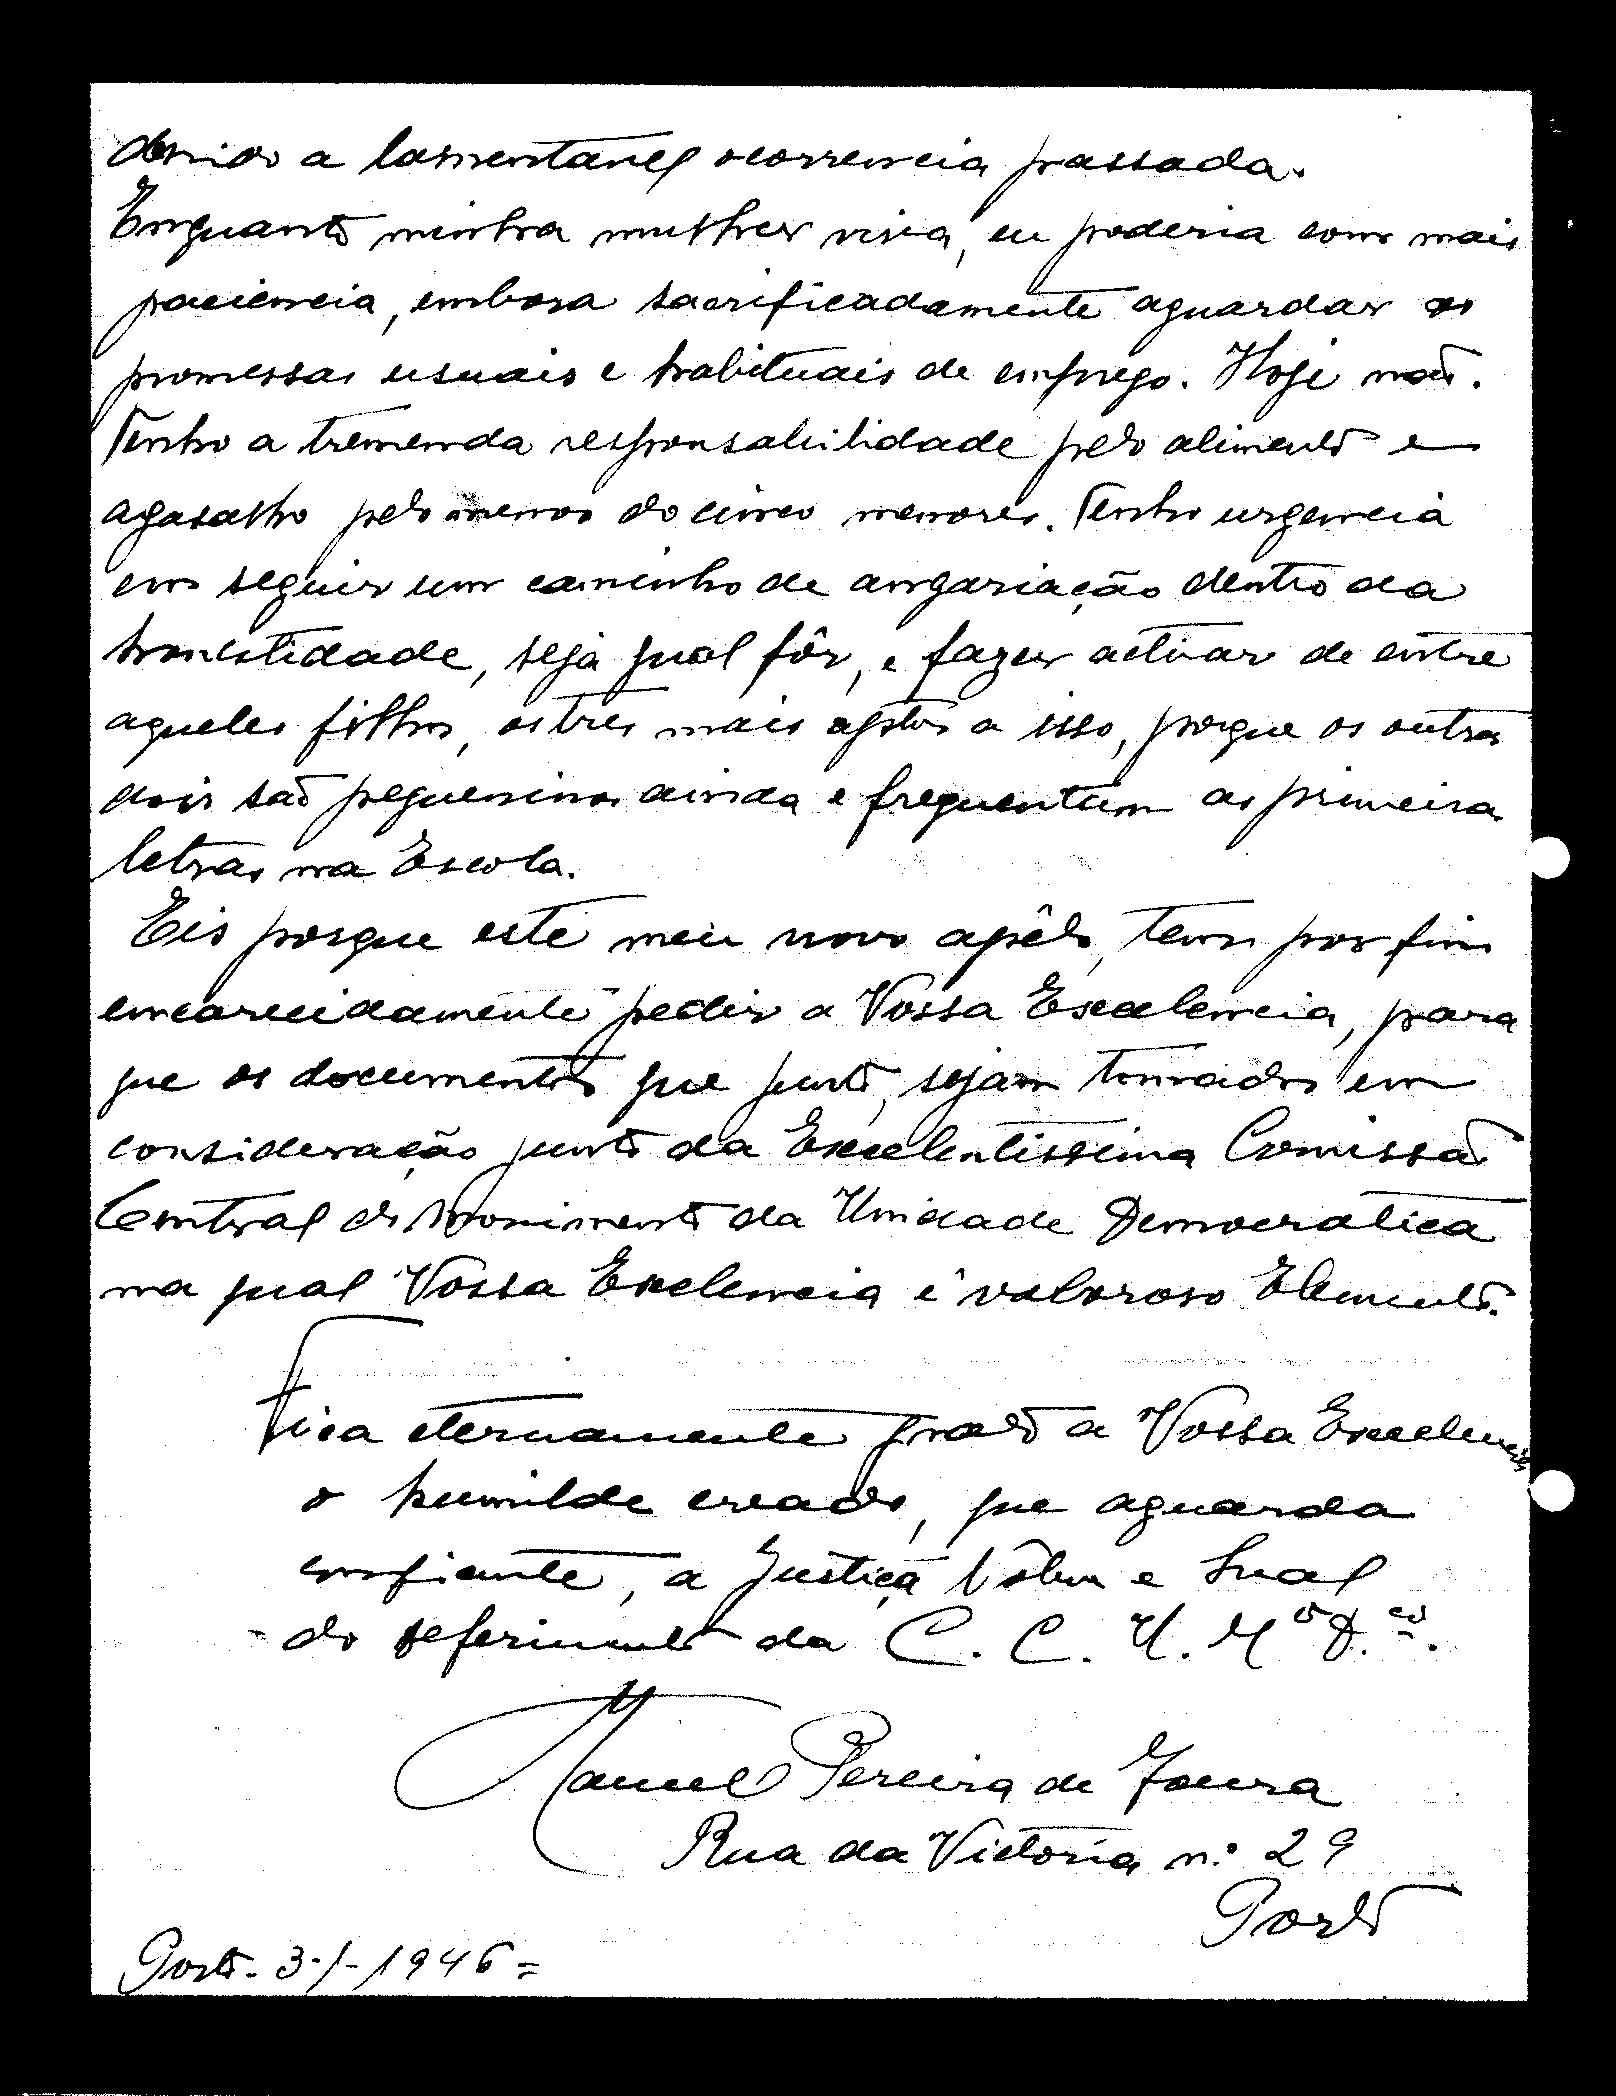 devido a lamentavel ocorrencia passada.
Enquanto minha mulher vivia, eu poderia com mais
paciencia, embora sacrificadamente aguardar as
promessas usuais e habituais de emprego. Hoje não.
Tenho a tremenda responsabilidade pelo alimento e
agasalho pelo menos do cinco menores. Tenho urgencia
em seguir um caminho de angariação dentro da
honestidade, seja qual fôr, e fazer activar de entre
aqueles filhos, os tres mais aptos a isso, porque os outros
dois são pequeninos ainda e frequentam as primeiras
letras na Escola.
Eis porque este meu novo apêlo, tem por fim
encarecidamente pedir a Vossa Excelencia, para
que os documentos que junto, sejam tomados em
consideração junto da Excelentissima Comissão
Central do Movimento da Unidade Democratica
na qual Vossa Excelencia é valoroso Elemento.
Fica eternamente grato a Vossa Excelencia
o humilde creado, que aguarda
confiante, a Justiça Nobre e Leal
do deferimento da C. C. U. Mº D.ca.
Manuel Pereira de Moura
Rua da Victoria n.º 29
Porto
Porto - 3-1-1946 =